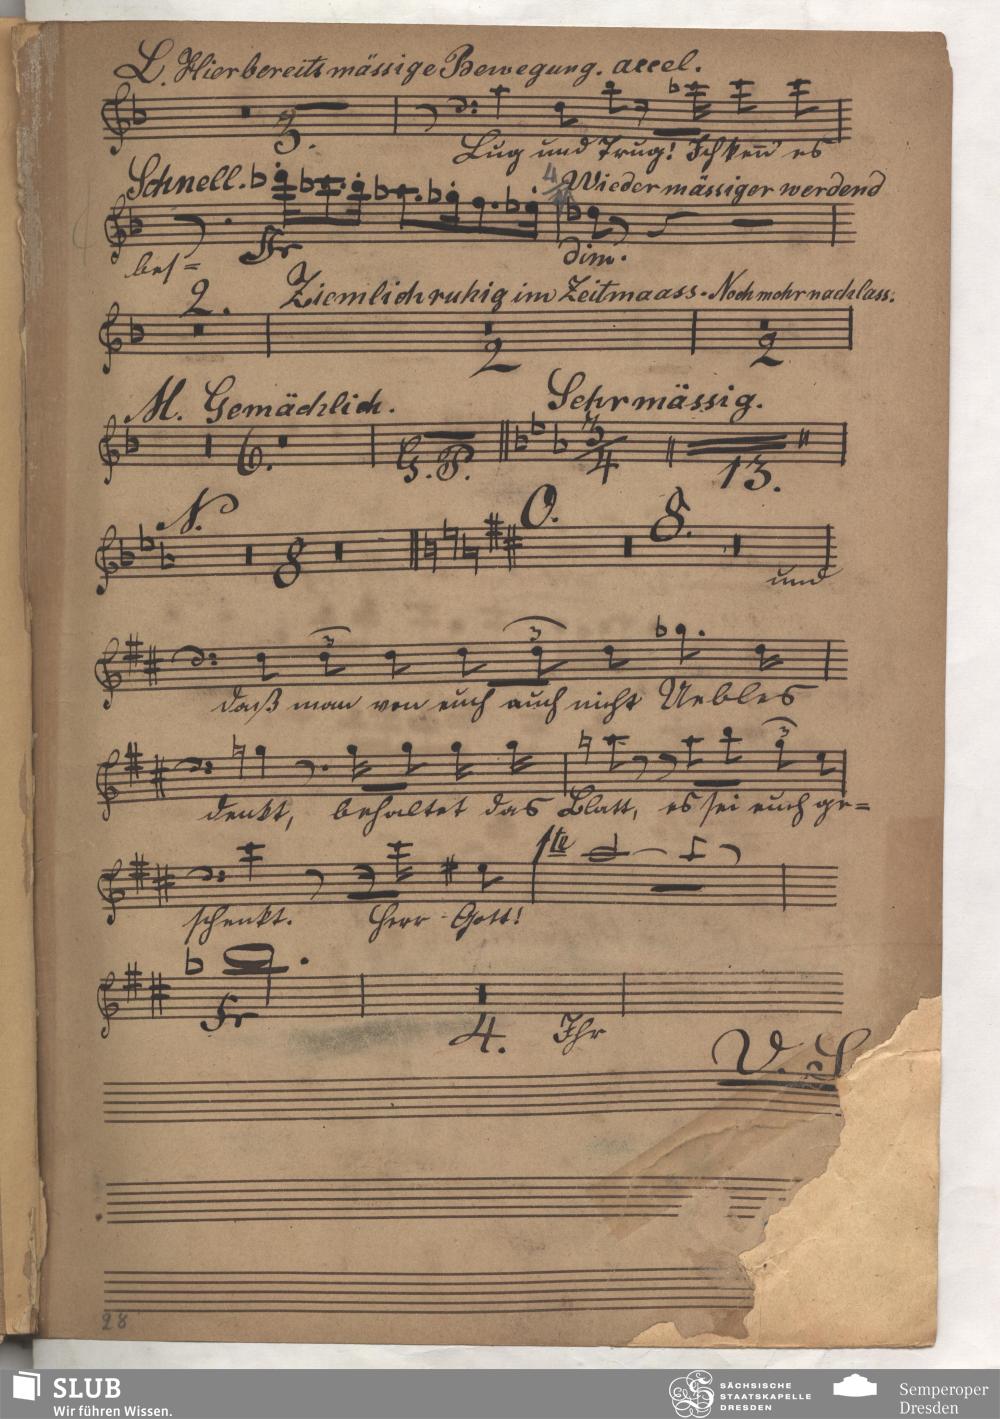 L. Hierbereits mässige Bewegung. accel.
3.
Lug und Trug! Ich kenn̄ es
Schnell.
4
Wieder mässiger werdend
bes= Fr dim.
2. Ziemlich ruhig im Zeitmaass. Noch mehr nachlass.
2 2
M. Gemächlich. Sehr mässig.
6. G.P. 3/4 13.
N. O.
8 8.
und
3 3
daß man von euch auch nicht Uebles
3
denkt, behaltet das Blatt, es sei euch ge=
1te
schenkt. Herr Gott!
Fr
4. Ihr
V. S
28
SLUB
Wir führen Wissen.
SÄCHSISCHE
STAATSKAPELLE
DRESDEN
Semperoper
Dresden